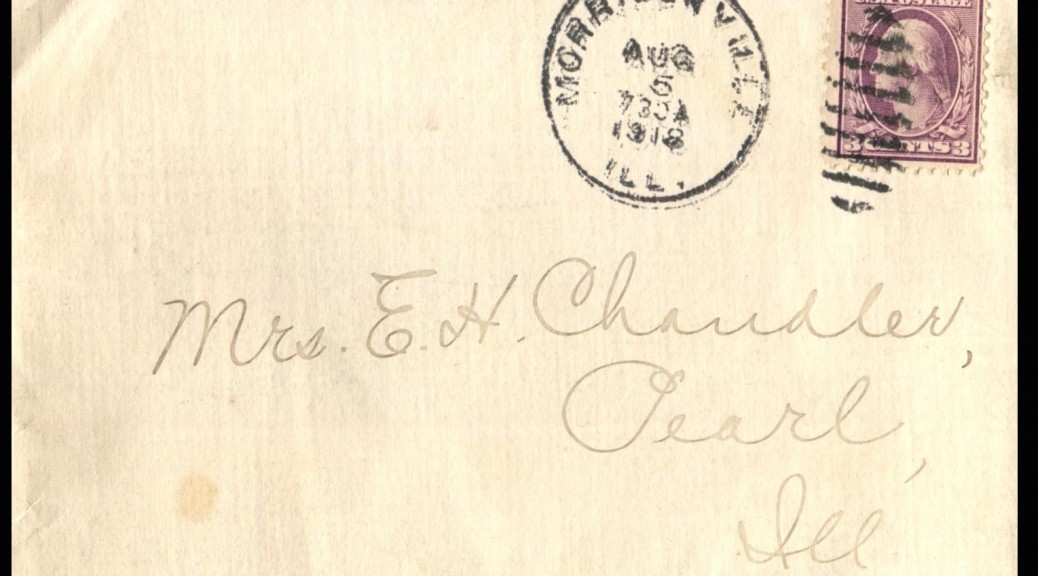 MORRISONVILLE
AUG
5
730A
1918
ILL.
U.S. POSTAGE
3 CENTS 3
Mrs. E. H. Chandler,
Pearl,
Ill